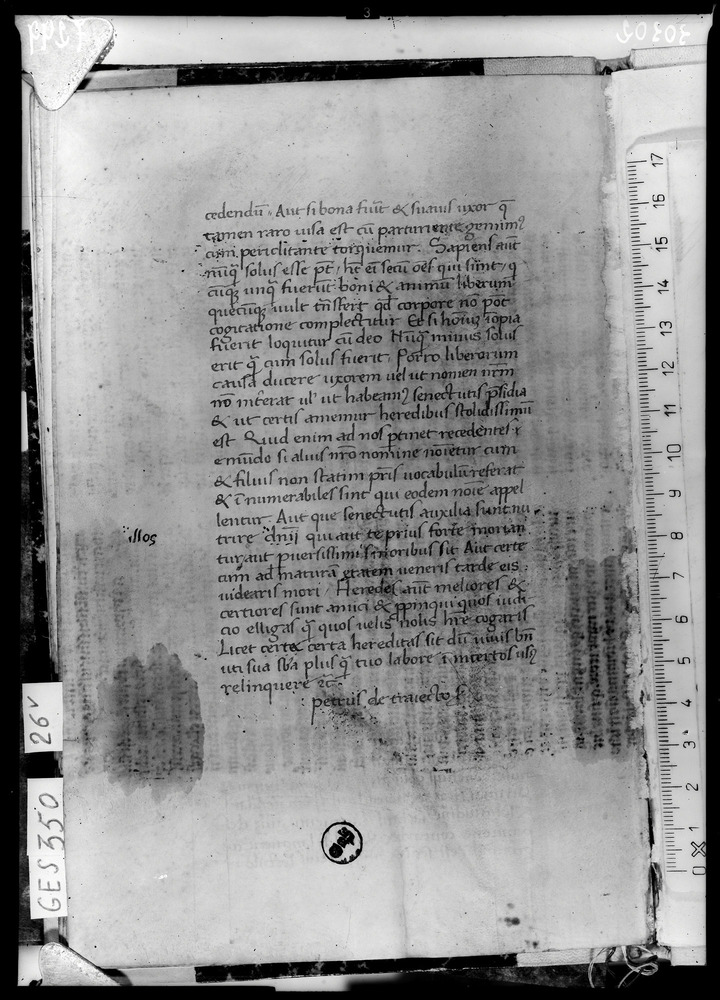 cedendū. Aut si bona fuīt & suauis uxor q̄
tamen raro uisa est cū parturiente gemim⁹
cum periclitante torquemur. Sapiens aūt
nūq̄ solus esse pt̄, ht̄ eī secū oēs qui sunt, q
cūq₃ unq̄ fuerūt boni & animū liberum
quecūq₃ uult trāsfert qđ corpore nō pōt
cogitatione complectitur Et si hoīum īopia
fuerit loquitur cū deo Nūq̄ minus solus
erit q̄ cum solus fuerit. Porro liberorum
causa ducere uxorem uel ut nomen nr̄m
nō intereat ul' ut habeam⁹ senectutis p̄sidia
& ut certis amemur heredibus stolidissimū
est Quid enim ad nos ptinet recedentes ī
e mūdo si alius nr̄o nomine noīetur cum
& filius non statim pr̄is uocabulū referat
& īnumerabiles sint qui eodem noīe appel
lentur. Aut que senectutis auxilia sunt nu
illos
trire dnīj qui aut te prius forte morian
tur aut puersissimi s moribus sit Aut certe
cum ad maturā etatem ueneris tarde eis
uidearis mori. Heredes aūt meliores &
certiores sunt amici & ppinqui quos iudi
cio elligas q̄ quos uelis nolis hr̄e cogaris
Licet certa hereditas sit dū uiuis bn̄
uti sua sb̄a plus q̄ tuo labore ī incertos us⁹
relinquere ēc.
petrus de traiecto
GES 350
26v
30302
7299
0 1 2 3 4 5 6 7 8 9 10 11 12 13 14 15 16 17